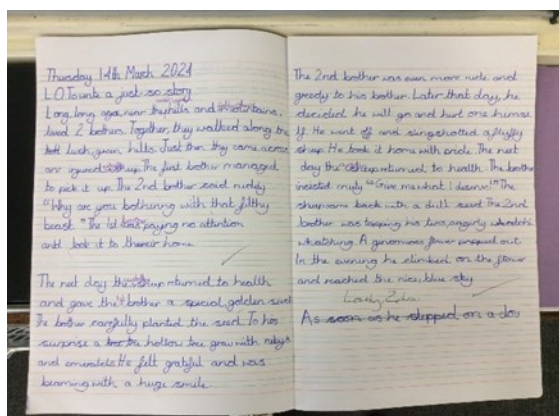 Thursday 14th March 2024
L.O. To write a just so story
Long, long ago, near the hills and mountains,
lived 2 brothers. Together, they walked along the
lush, green hills. Just then they came across
an injured sheep. The first brother managed
to pick it up. The 2nd brother said rudely
"Why are you bothering with that filthy
beast." The 1st paying no attention
and took it to their home
The next day the sheep returned to health
and gave the brother a special, golden seed
The brother carefully planted the seed. To his
surprise a hollow tree grew with rubys
and emeralds. He felt grateful and was
beaming with a huge smile.
The 2nd brother was even more rude and
greedy to his brother. Later that day, he
decided he will go and hurt one himse
lf. He went off and slingshotted a fluffy
sheep. He took it home with pride. The next
day the sheep returned to health. The brother
insisted "Give me what I deserve!" The
sheep came back with a dull seed. The 2nd
brother was tapping his toes, angrily
whatching. A ginormous flower out
In the evening he climbed on the flower
and reached the nice, blue sky
As soon as he stepped on a clou